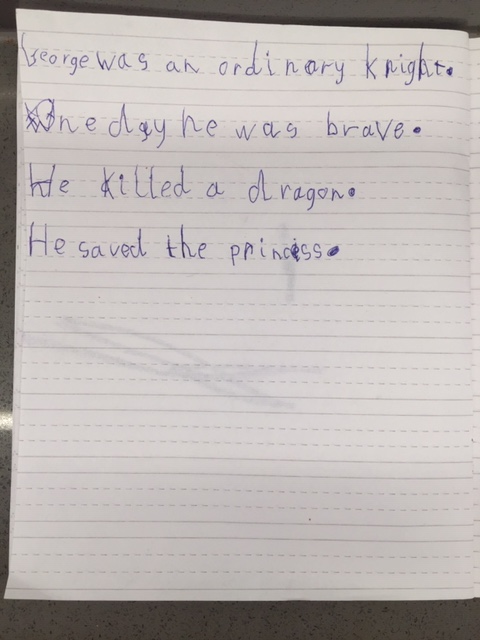 George was an ordinary knight.
One day he was brave.
He killed a dragon.
He saved the princess.